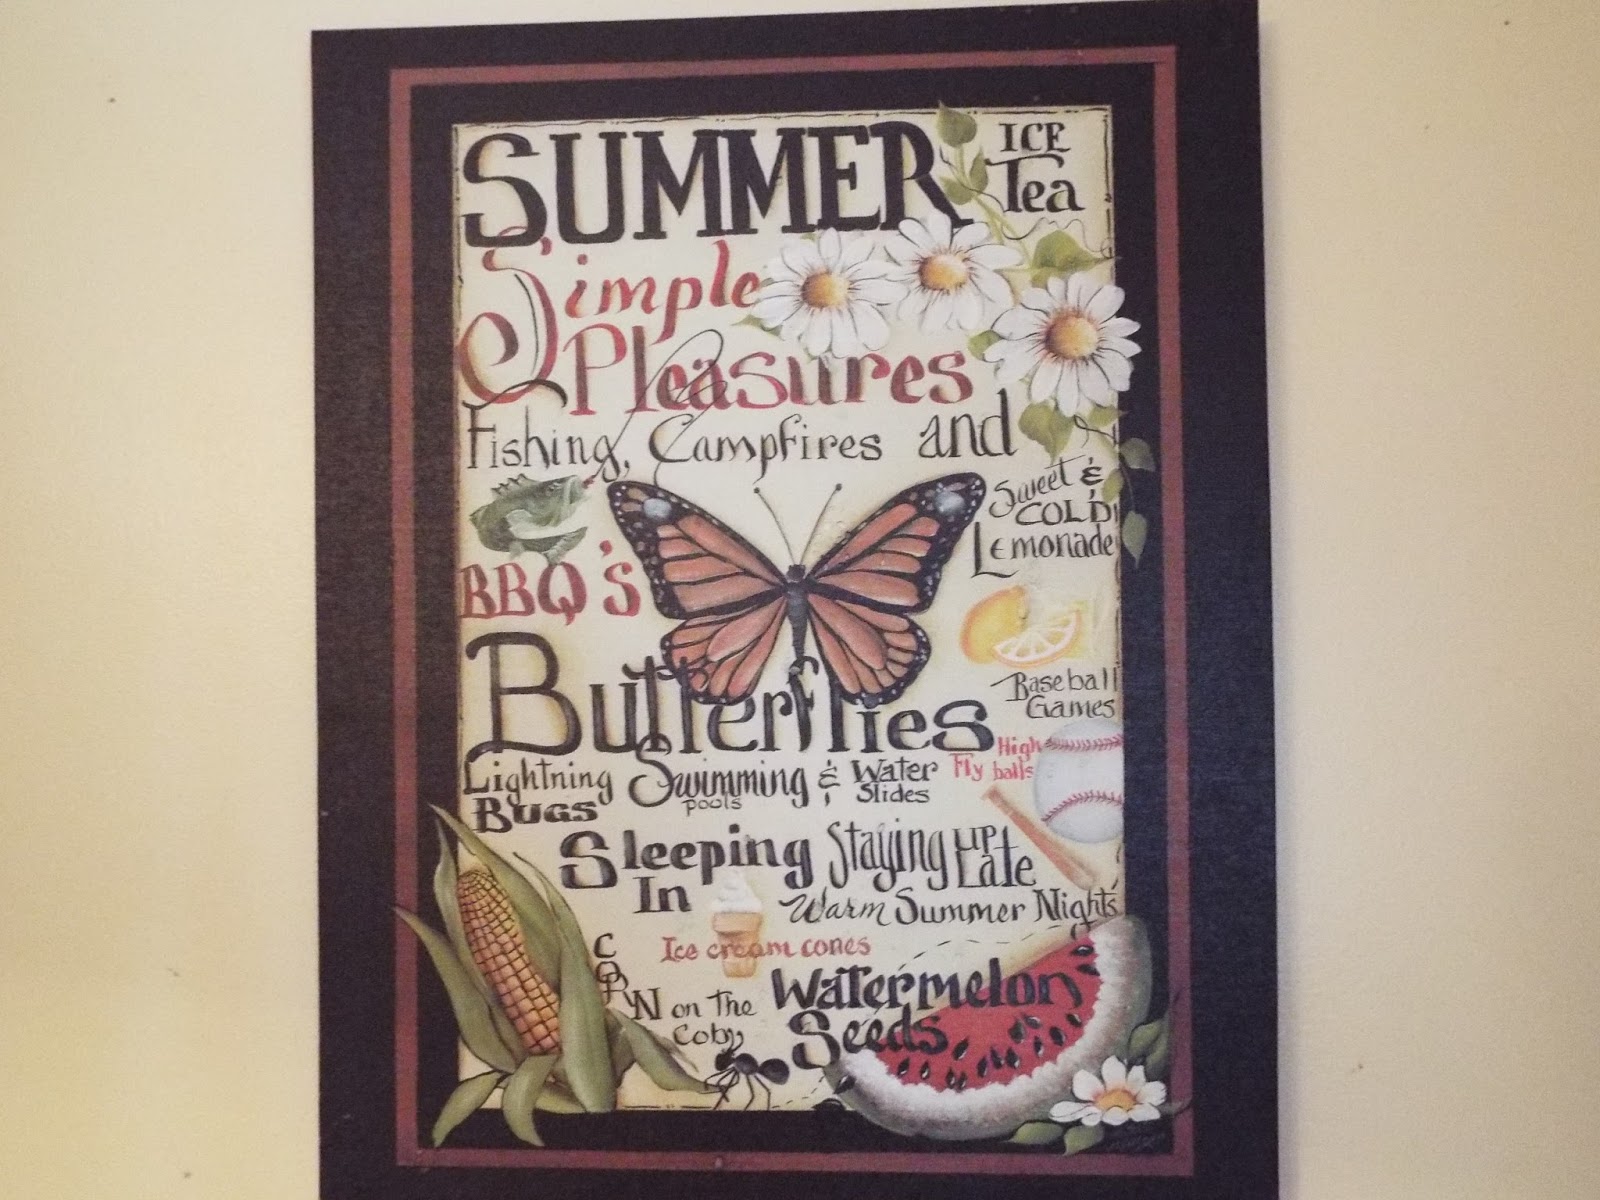 SUMMER
ICE
Tea
Simple
Pleasures
Fishing, Campfires and
Sweet &
COLD
Lemonade
BBQ'S
Butterflies
Baseball
Games
High
Fly balls
Lightning
Bugs
Swimming & Water
pools Slides
Sleeping
In
Staying up
Late
Warm Summer Nights
Ice cream cones
CORN on The
Cob
Watermelon
Seeds